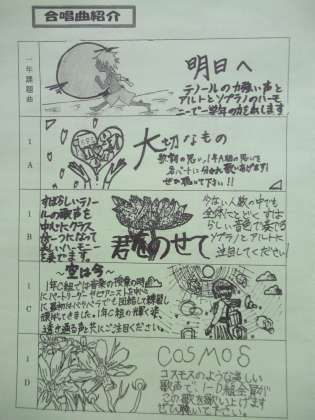 合唱曲紹介
一年課題曲
明日へ
テノールの力強い声と
アルトとソプラノのハーモ
ニーで一学年の力を表します
1A
大切なもの
歌詞の思い、1年A組の思いを
各パートに分かれ歌いあげます!
ぜひ聴いて下さい!!
1B
すばらしいテノール
の歌声を
中心にクラス
が一つになって
美しいハーモニー
を奏でます。
君をのせて
少ない人数の中でも
全体にとどくすば
らしい音色で奏でる
ソプラノとアルトに
注目してください!
1
~空は今~
1年C組では音楽の授業の時
にパートリーダーやピアニストを中心
に最初はバラバラでも団結して練習し
頑張ってきました。1年C組の
透き通る声と共にご注目ください。
1D
COSMOS
コスモスのような美しい
歌声で、1-D組全員が
この歌を歌い上げます
ぜひ聴いて下さい。